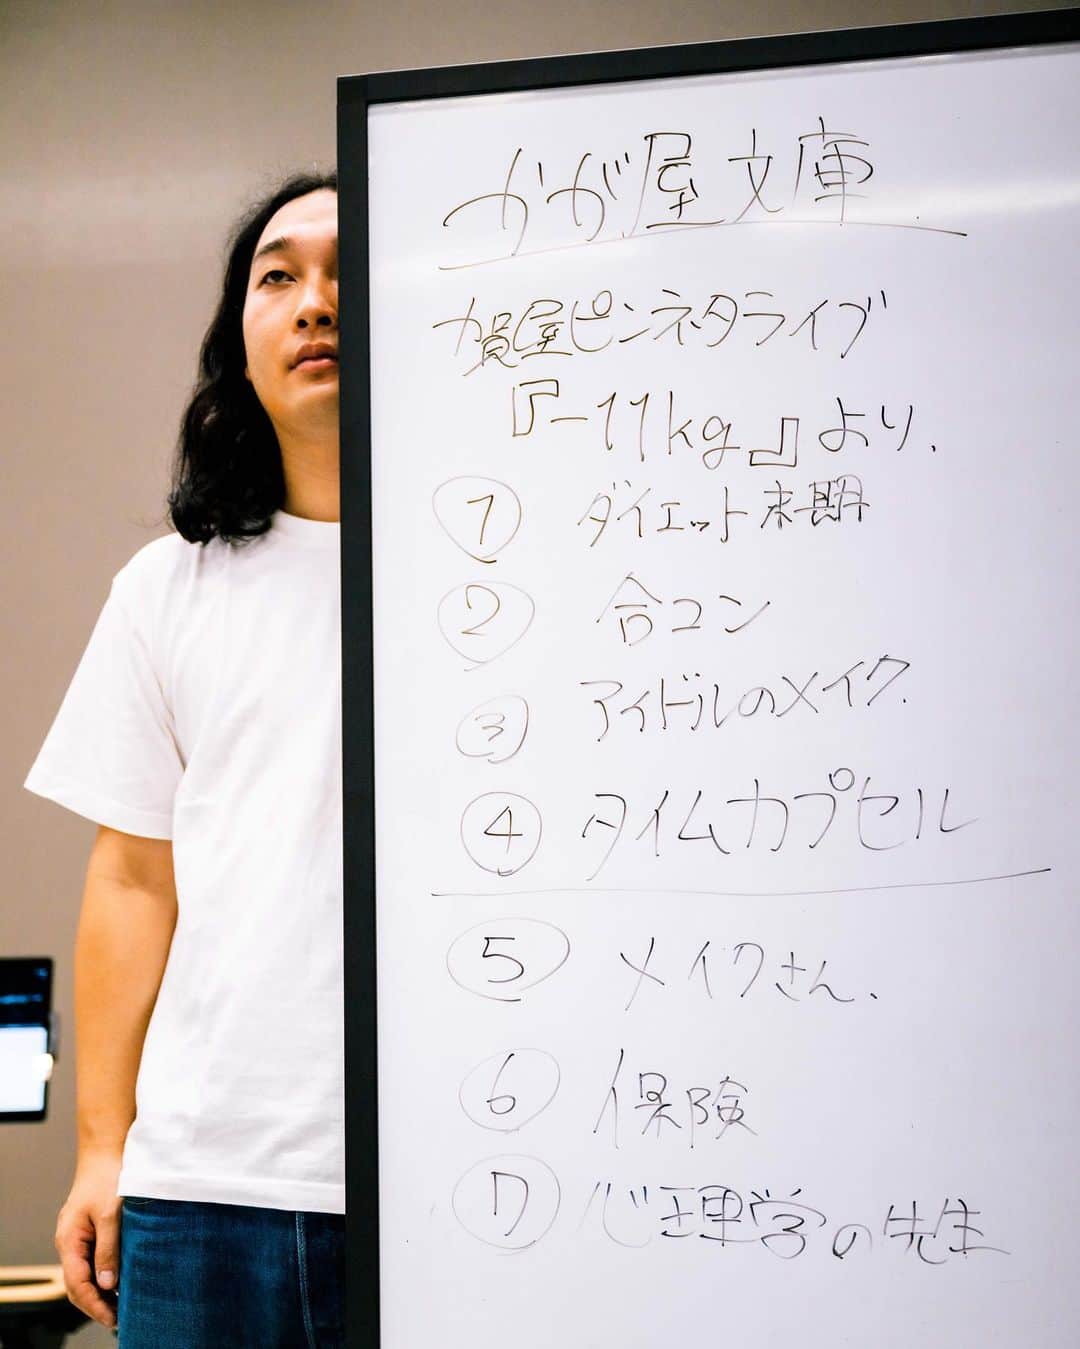 かが屋文庫
賀屋ピンネタライブ
『-11kg』より.
① ダイエット末期
② 合コン
③ アイドルのメイク.
④ タイムカプセル
⑤ メイクさん.
⑥ 保険
⑦ 心理学の先生